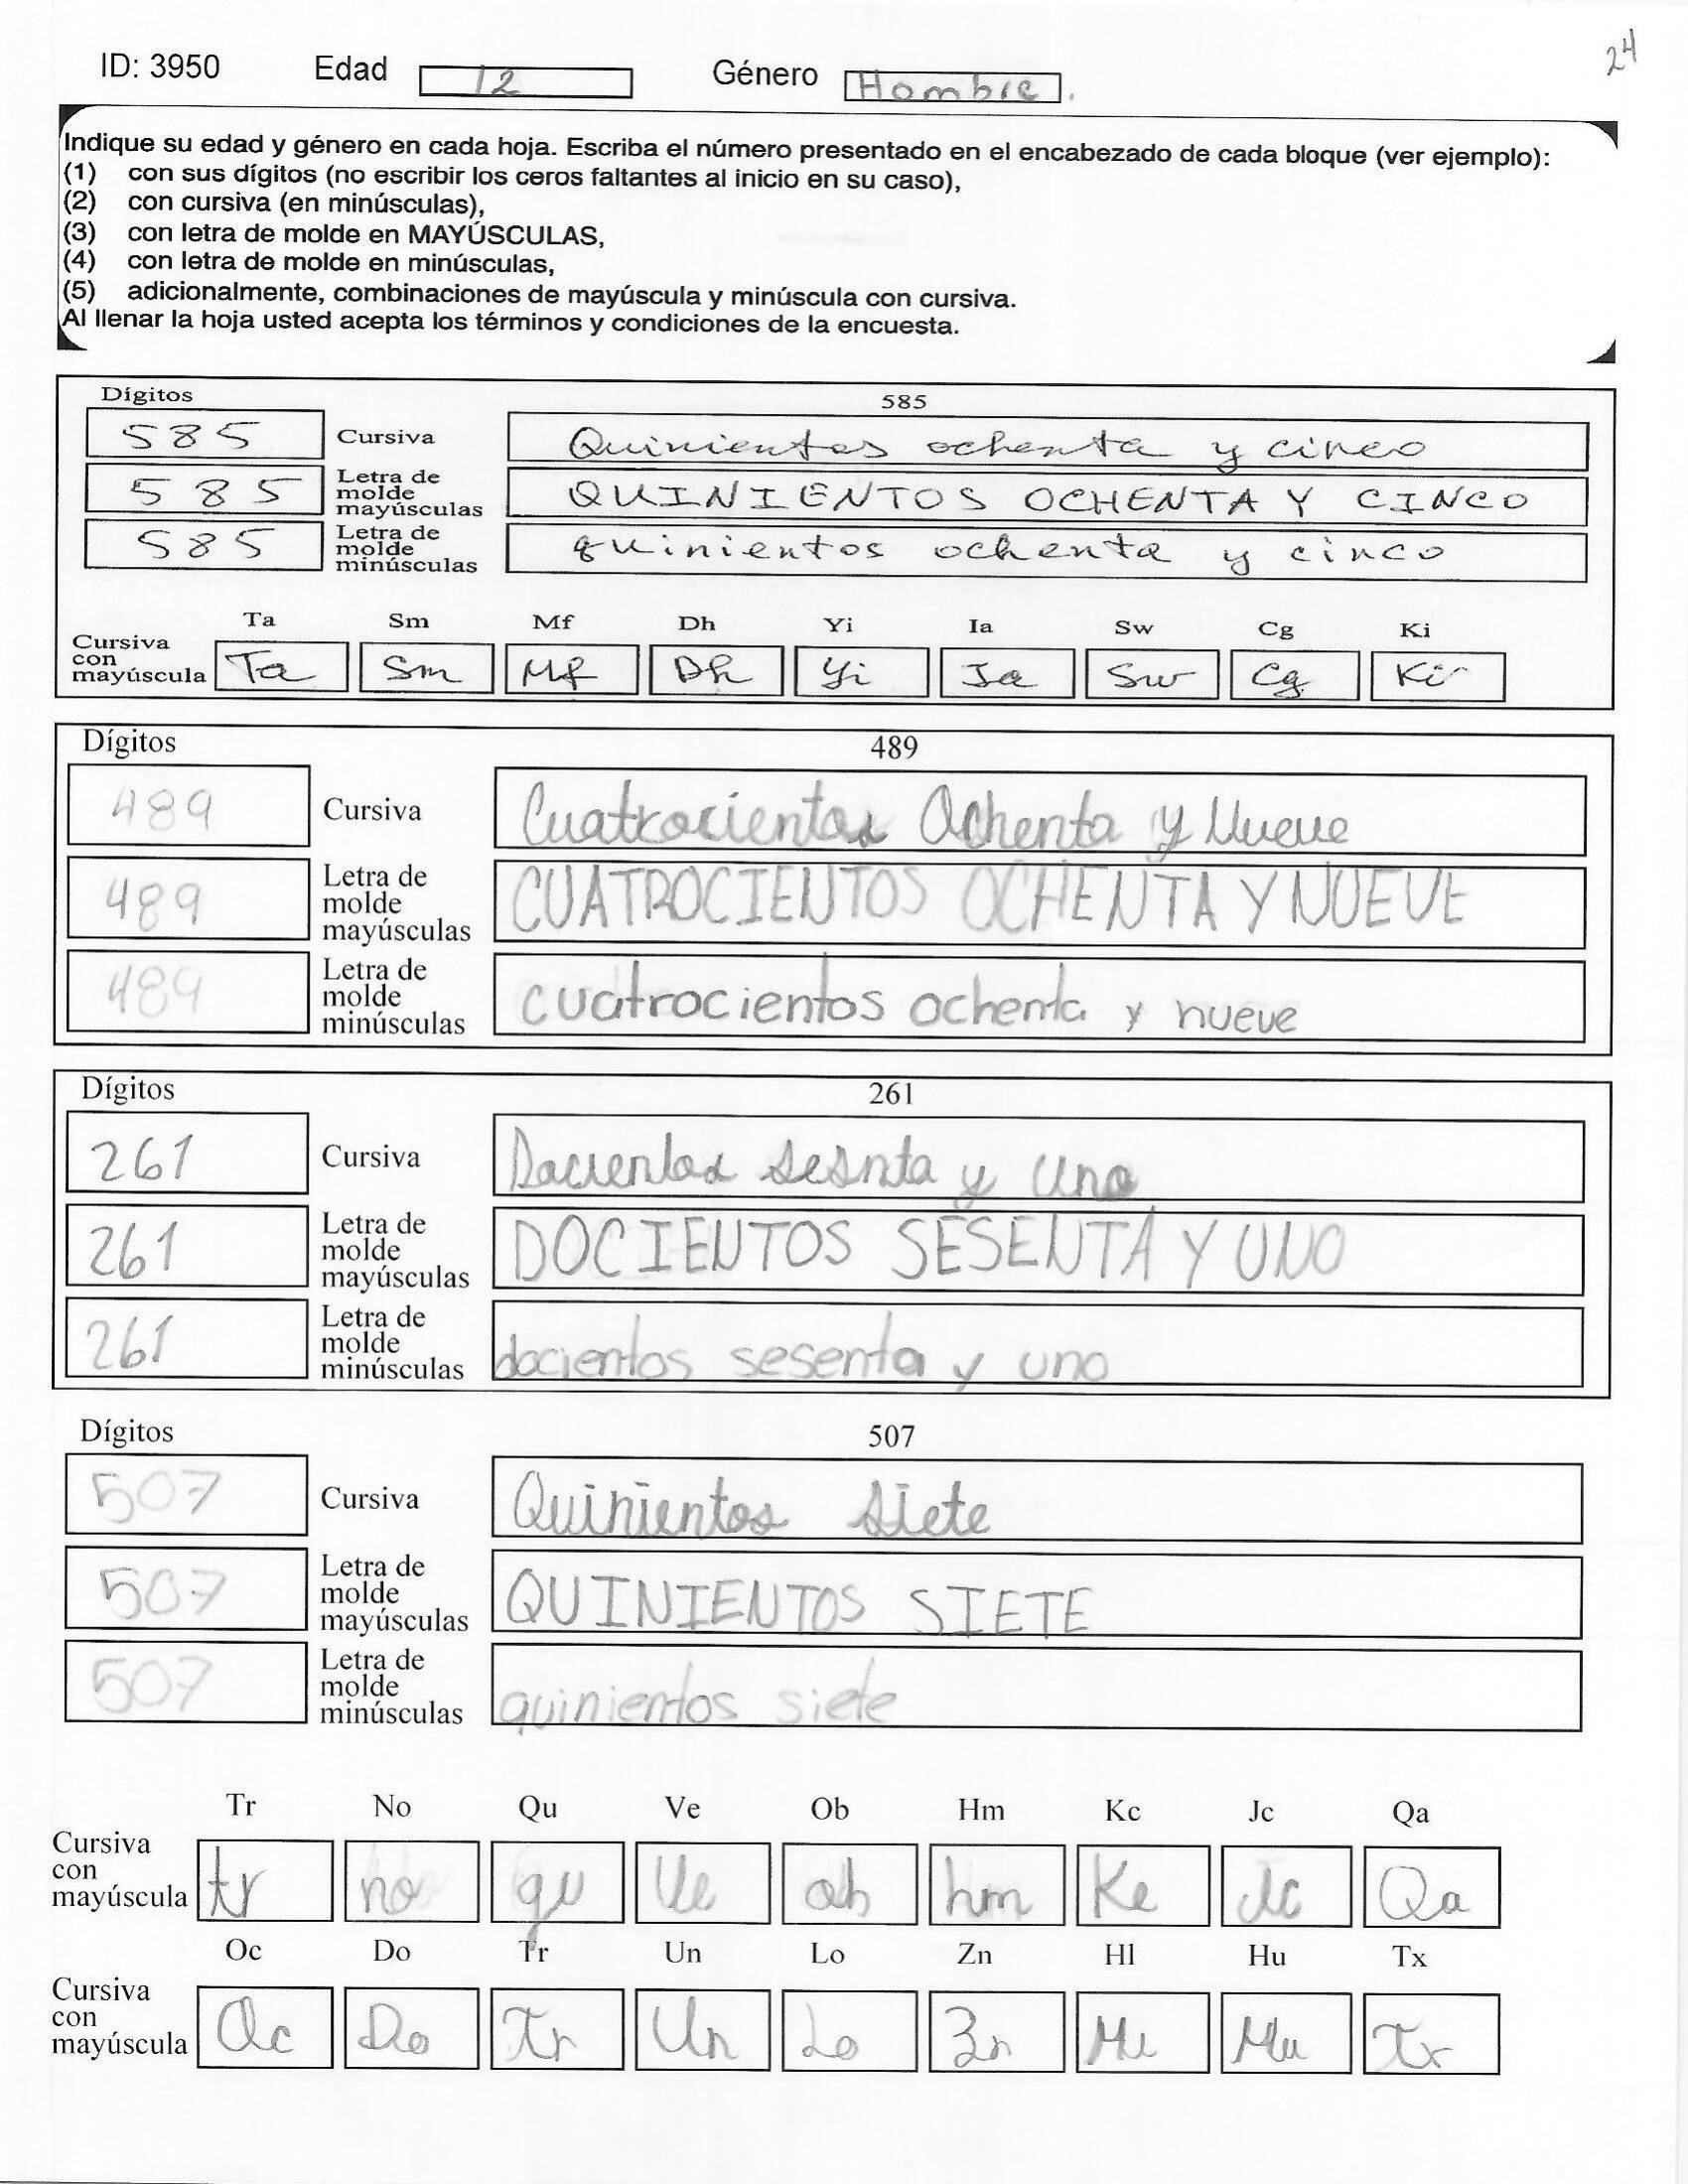 ID: 3950 Edad 12 Género Hombre. 24
Indique su edad y género en cada hoja. Escriba el número presentado en el encabezado de cada bloque (ver ejemplo):
(1) con sus dígitos (no escribir los ceros faltantes al inicio en su caso),
(2) con cursiva (en minúsculas),
(3) con letra de molde en MAYÚSCULAS,
(4) con letra de molde en minúsculas,
(5) adicionalmente, combinaciones de mayúscula y minúscula con cursiva.
Al llenar la hoja usted acepta los términos y condiciones de la encuesta.
Dígitos 585
585 Cursiva Quinientos ochenta y cinco
585 Letra de molde mayúsculas QUINIENTOS OCHENTA Y CINCO
585 Letra de molde minúsculas quinientos ochenta y cinco
Ta Sm Mf Dh Yi Ia Sw Cg Ki
Cursiva con mayúscula Ta Sm Mf Dh Yi Ia Sw Cg Ki
Dígitos 489
489 Cursiva Cuatrocientos Ochenta y Nueve
489 Letra de molde mayúsculas CUATROCIENTOS OCHENTA Y NUEVE
489 Letra de molde minúsculas cuatrocientos ochenta y nueve
Dígitos 261
261 Cursiva Docientos sesnta y uno
261 Letra de molde mayúsculas DOCIENTOS SESENTA Y UNO
261 Letra de molde minúsculas docientos sesenta y uno
Dígitos 507
507 Cursiva Quinientos siete
507 Letra de molde mayúsculas QUINIENTOS SIETE
507 Letra de molde minúsculas quinientos siete
Tr No Qu Ve Ob Hm Kc Jc Qa
Cursiva con mayúscula tr no qu Ve ob hm Kc Jc Qa
Oc Do Tr Un Lo Zn Hl Hu Tx
Cursiva con mayúscula Oc Do Tr Un Lo Zn Hl Hu Tx